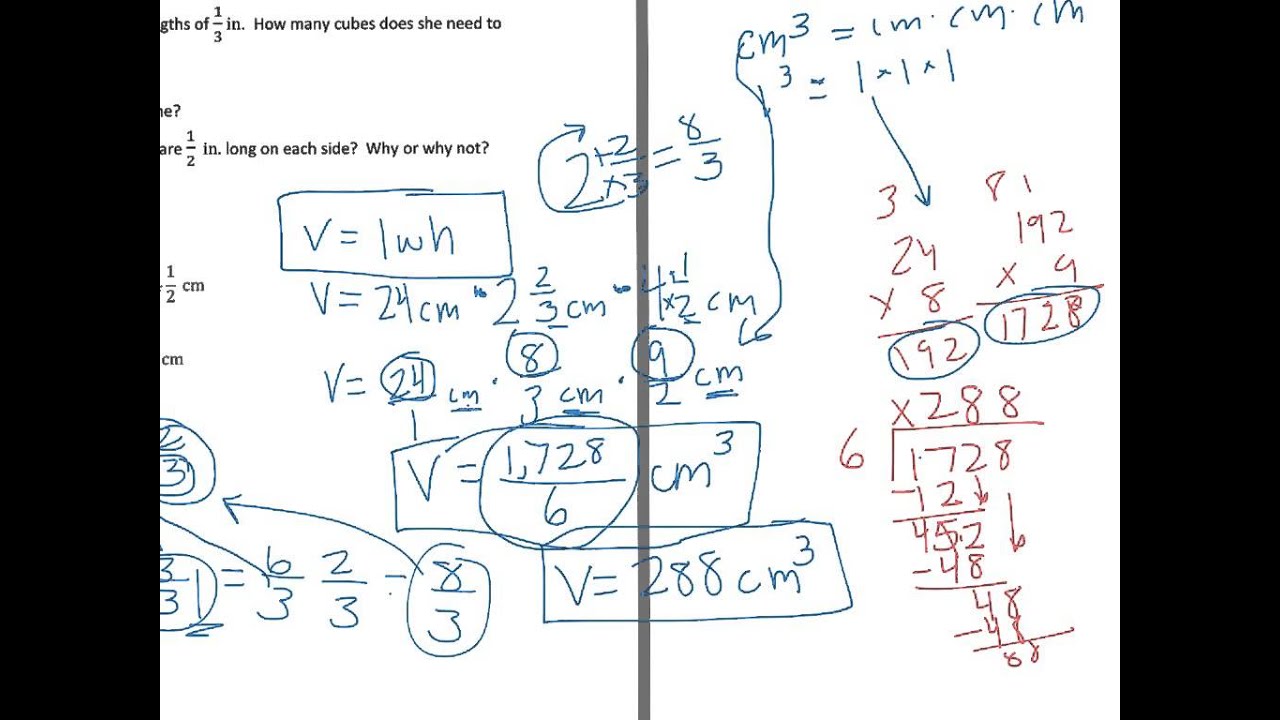 gths of 1/3 in. How many cubes does she need to
ne?
are 1/2 in. long on each side? Why or why not?
1/2 cm
cm
V = lwh
2 + 2/× 3 = 8/3
V = 24 cm · 2 2/3 cm · 4 + 1/× 2 cm
V = 24 cm · 8/3 cm · 9/2 cm
1
V = 1,728/6 cm³
V = 288 cm³
3
= 6/3 2/3 = 8/3
cm³ = cm · cm · cm
³ = 1 × 1 × 1
3
24
× 8
192
8 1
192
× 9
1728
× 288
6 1728
-12
452
-48
48
-48